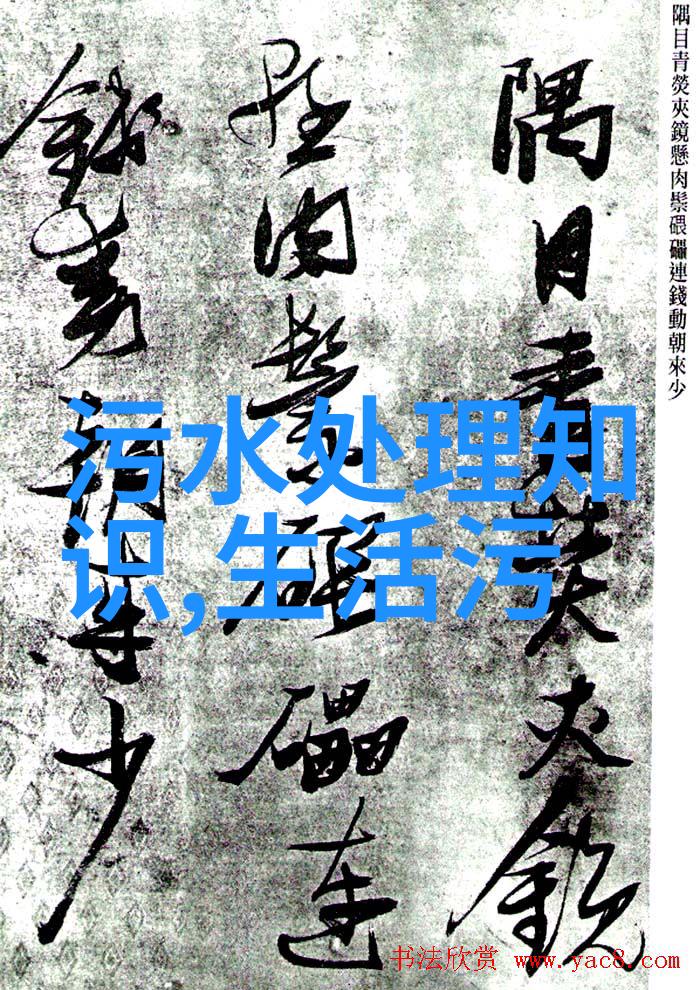 隅目青熒夾鏡懸肉鬃碨礧連錢動朝來少
隅目青熒夾鏡
懸肉鬃碨礧連
錢動朝來少
污水处理知
识,生活污
书法欣赏 www.yac8.com